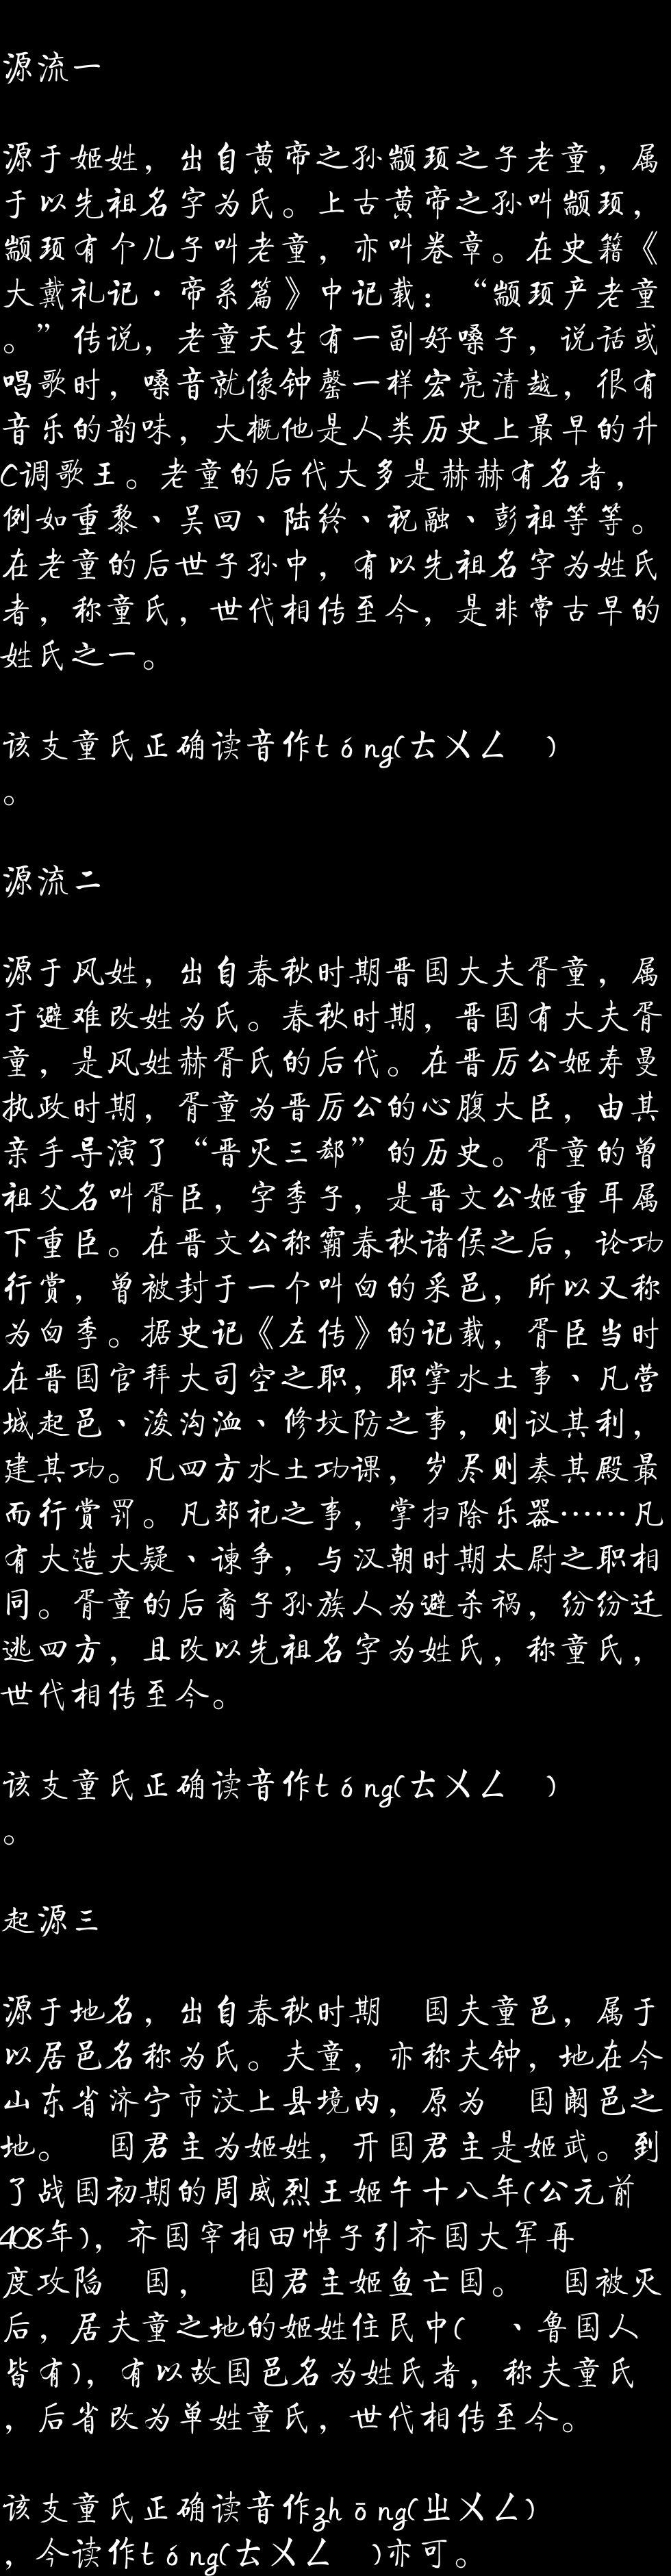 源流一
源于姬姓，出自黄帝之孙颛顼之子老童，属
于以先祖名字为氏。上古黄帝之孙叫颛顼，
颛顼有个儿子叫老童，亦叫卷章。在史籍《
大戴礼记·帝系篇》中记载：“颛顼产老童
。”传说，老童天生有一副好嗓子，说话或
唱歌时，嗓音就像钟罄一样宏亮清越，很有
音乐的韵味，大概他是人类历史上最早的升
C调歌王。老童的后代大多是赫赫有名者，
例如重黎、吴回、陆终、祝融、彭祖等等。
在老童的后世子孙中，有以先祖名字为姓氏
者，称童氏，世代相传至今，是非常古早的
姓氏之一。
该支童氏正确读音作tóng(ㄊㄨㄥ )
。
源流二
源于风姓，出自春秋时期晋国大夫胥童，属
于避难改姓为氏。春秋时期，晋国有大夫胥
童，是风姓赫胥氏的后代。在晋厉公姬寿曼
执政时期，胥童为晋厉公的心腹大臣，由其
亲手导演了“晋灭三郄”的历史。胥童的曾
祖父名叫胥臣，字季子，是晋文公姬重耳属
下重臣。在晋文公称霸春秋诸侯之后，论功
行赏，曾被封于一个叫臼的采邑，所以又称
为臼季。据史记《左传》的记载，胥臣当时
在晋国官拜大司空之职，职掌水土事、凡营
城起邑、浚沟洫、修坟防之事，则议其利，
建其功。凡四方水土功课，岁尽则奏其殿最
而行赏罚。凡郊祀之事，掌扫除乐器……凡
有大造大疑、谏争，与汉朝时期太尉之职相
同。胥童的后裔子孙族人为避杀祸，纷纷迁
逃四方，且改以先祖名字为姓氏，称童氏，
世代相传至今。
该支童氏正确读音作tóng(ㄊㄨㄥ )
。
起源三
源于地名，出自春秋时期 国夫童邑，属于
以居邑名称为氏。夫童，亦称夫钟，地在今
山东省济宁市汶上县境内，原为 国阚邑之
地。 国君主为姬姓，开国君主是姬武。到
了战国初期的周威烈王姬午十八年(公元前
408年)，齐国宰相田悼子引齐国大军再
度攻陷 国， 国君主姬鱼亡国。 国被灭
后，居夫童之地的姬姓住民中( 、鲁国人
皆有)，有以故国邑名为姓氏者，称夫童氏
，后省改为单姓童氏，世代相传至今。
该支童氏正确读音作zhōng(ㄓㄨㄥ)
，今读作tóng(ㄊㄨㄥ )亦可。